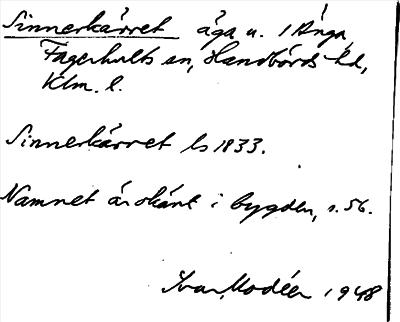 Sinnerkärret äga u. 1 Ånga,
Fagerhults sn, Handbörds hd,
Klm. l.
Sinnerkärret ls 1833.
Namnet är okänt i bygden, s. 56.
Ivar Modéer 1948